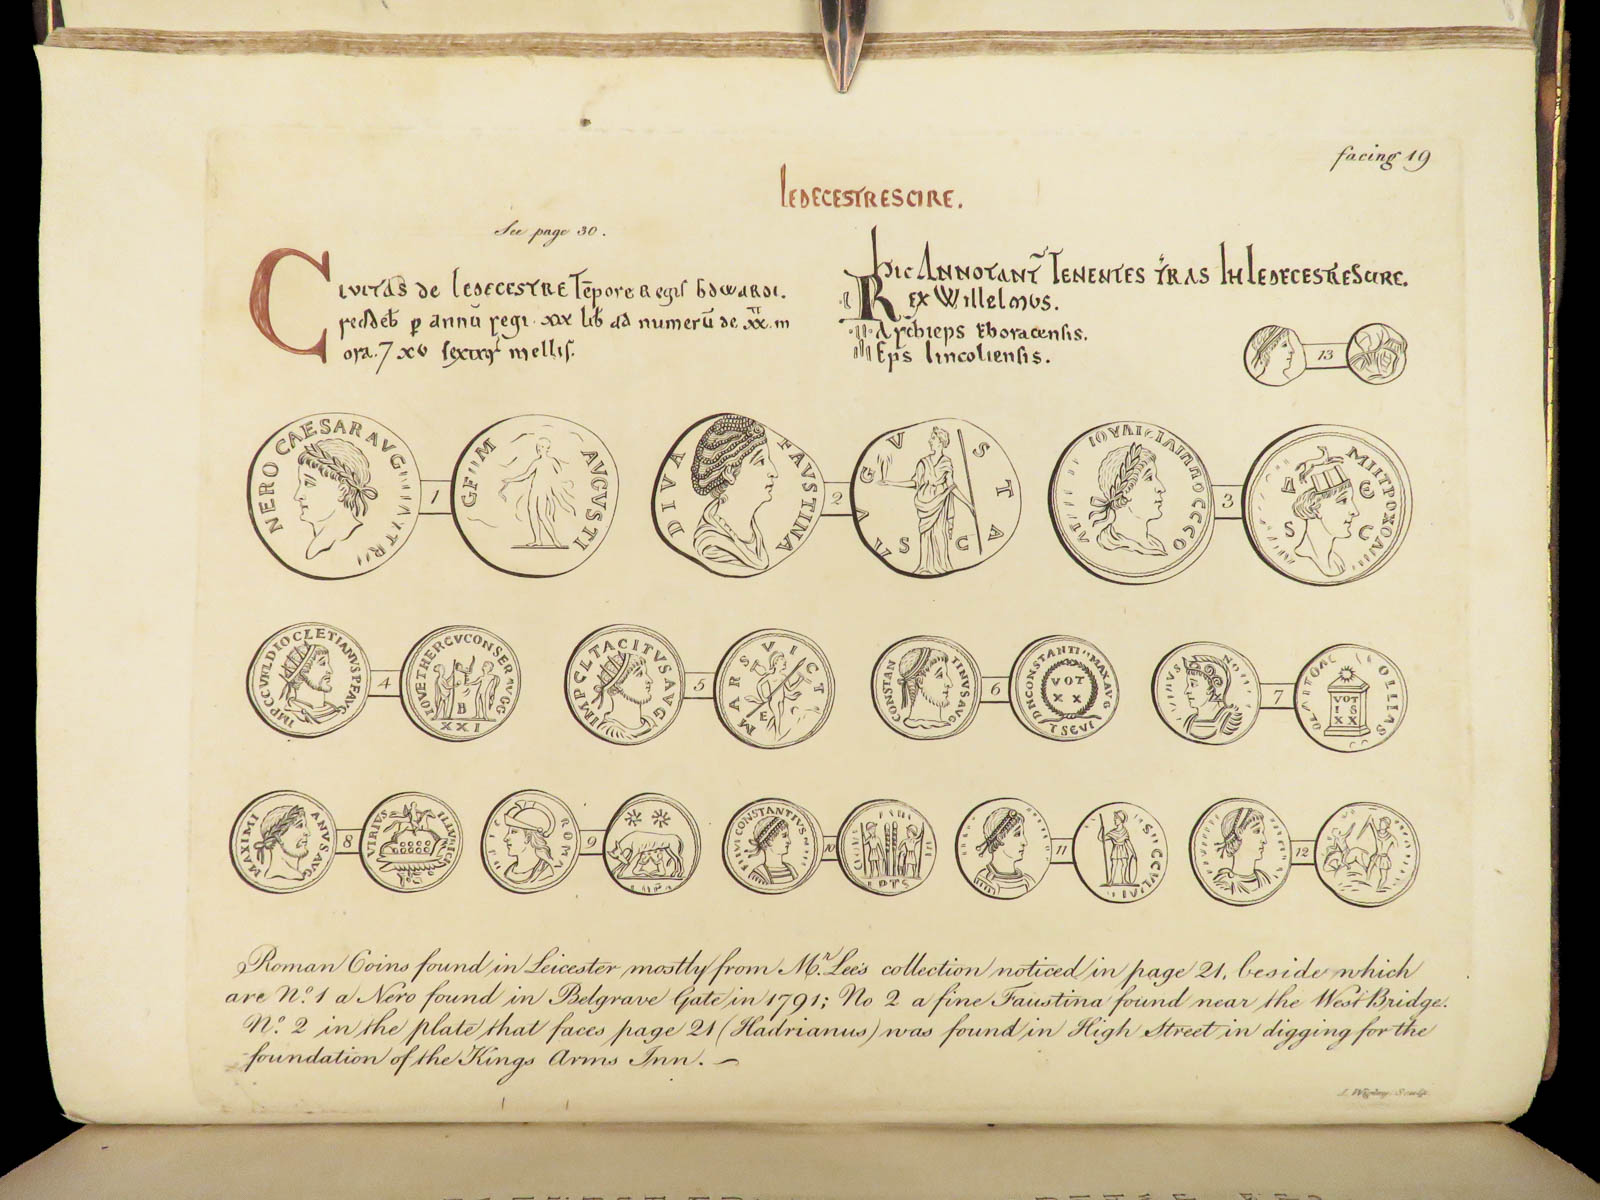 facing 19
LEDECESTRESCIRE.
See page 30.
CIVITAS DE LEDECESTRE Tēpore Regis EDWARDI.
reddeb p annū regi. xxx lib ad numerū de xx. in
ora. 7 xv sextar mellis.
HIC ANNOTANT TENENTES TRAS IN LEDECESTRESCIRE.
REX Willelmus.
Archieps Eboracensis.
Eps lincoliensis.
13
NERO CAESAR AVG TR
1
GENI AVGUSTI
DIVA FAVSTINA
2
AVGVSTA S C
3
Δ Ε S C
IMP C C VAL DIOCLETIANVS P F AVG
4
IOVETHERCVCONSERAVGG
B
XXI
IMPCLTACITVSAVG
5
MARS VICT
E
CONSTANTINVSAVG
6
DNCONSTANTI MAX AVG
VOT
XX
TSEVI
7
VOT
IS
XX
MAXIMIANVS AVG
8
VIRIVS ILLVRICI
ROMA
9
FLIVLCONSTANTIVS
10
11
12
Roman Coins found in Leicester mostly from Mr. Lee's collection noticed in page 21, beside which
are No. 1 a Nero found in Belgrave Gate in 1791; No 2 a fine Faustina found near the West Bridge.
No. 2 in the plate that faces page 21 (Hadrianus) was found in High Street in digging for the
foundation of the Kings Arms Inn. —